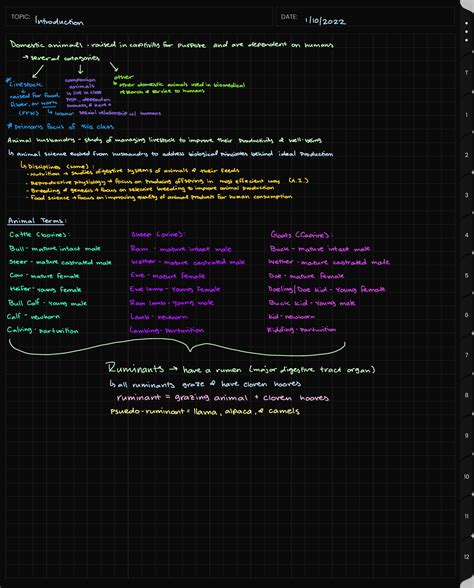 TOPIC: Introduction
DATE: 1/10/2022
Domestic animals - raised in captivity for purpose and are dependent on humans
→ several categories
*Livestock
↳ raised for food, fiber, or work
(FFW) ↳ labour
companion animals
↳ live in close
dependent
humans, & have a
special relationship w/ humans
other
↳ other domestic animals used in biomedical
research & service to humans
* primary focus of this class
Animal husbandry - study of managing livestock to improve their productivity & well-being
↳ animal science evolved from husbandry to address biological principles behind ideal production
↳ Disciplines (some):
- Nutrition → studies digestive systems of animals & their feeds
- Reproductive physiology → focus on producing offspring in most efficient way (A.I.)
- Breeding & genetics → focus on selective breeding to improve animal production
- Food science → focus on improving quality of animal products for human consumption
Animal Terms:
Cattle (bovine):
Bull - mature intact male
Steer - mature castrated male
Cow - mature female
Heifer - young female
Bull Calf - young male
Calf - newborn
Calving - parturition
Sheep (ovine):
Ram - mature intact male
Wether - mature castrated male
Ewe - mature female
Ewe lamb - young female
Ram lamb - young male
Lamb - newborn
Lambing - parturition
Goats (Caprine):
Buck - mature intact male
Wether - mature castrated male
Doe - mature female
Doeling/Doe kid - young female
Buck kid - young male
Kid - newborn
Kidding - parturition
Ruminants → have a rumen (major digestive tract organ)
↳ all ruminants graze & have cloven hooves
ruminant = grazing animal + cloven hooves
psuedo-ruminant = llama, alpaca, & camels
T
1
2
3
4
5
6
7
8
9
10
11
12